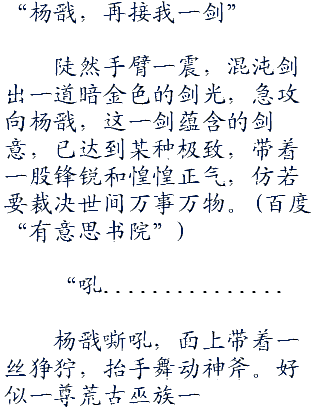 “杨戬，再接我一剑”
陡然手臂一震，混沌剑
出一道暗金色的剑光，急攻
向杨戬，这一剑蕴含的剑
意，已达到某种极致，带着
一股锋锐和惶惶正气，仿若
要裁决世间万事万物。(百度
“有意思书院”)
“吼...............
杨戬嘶吼，面上带着一
丝狰狞，抬手舞动神斧。好
似一尊荒古巫族一